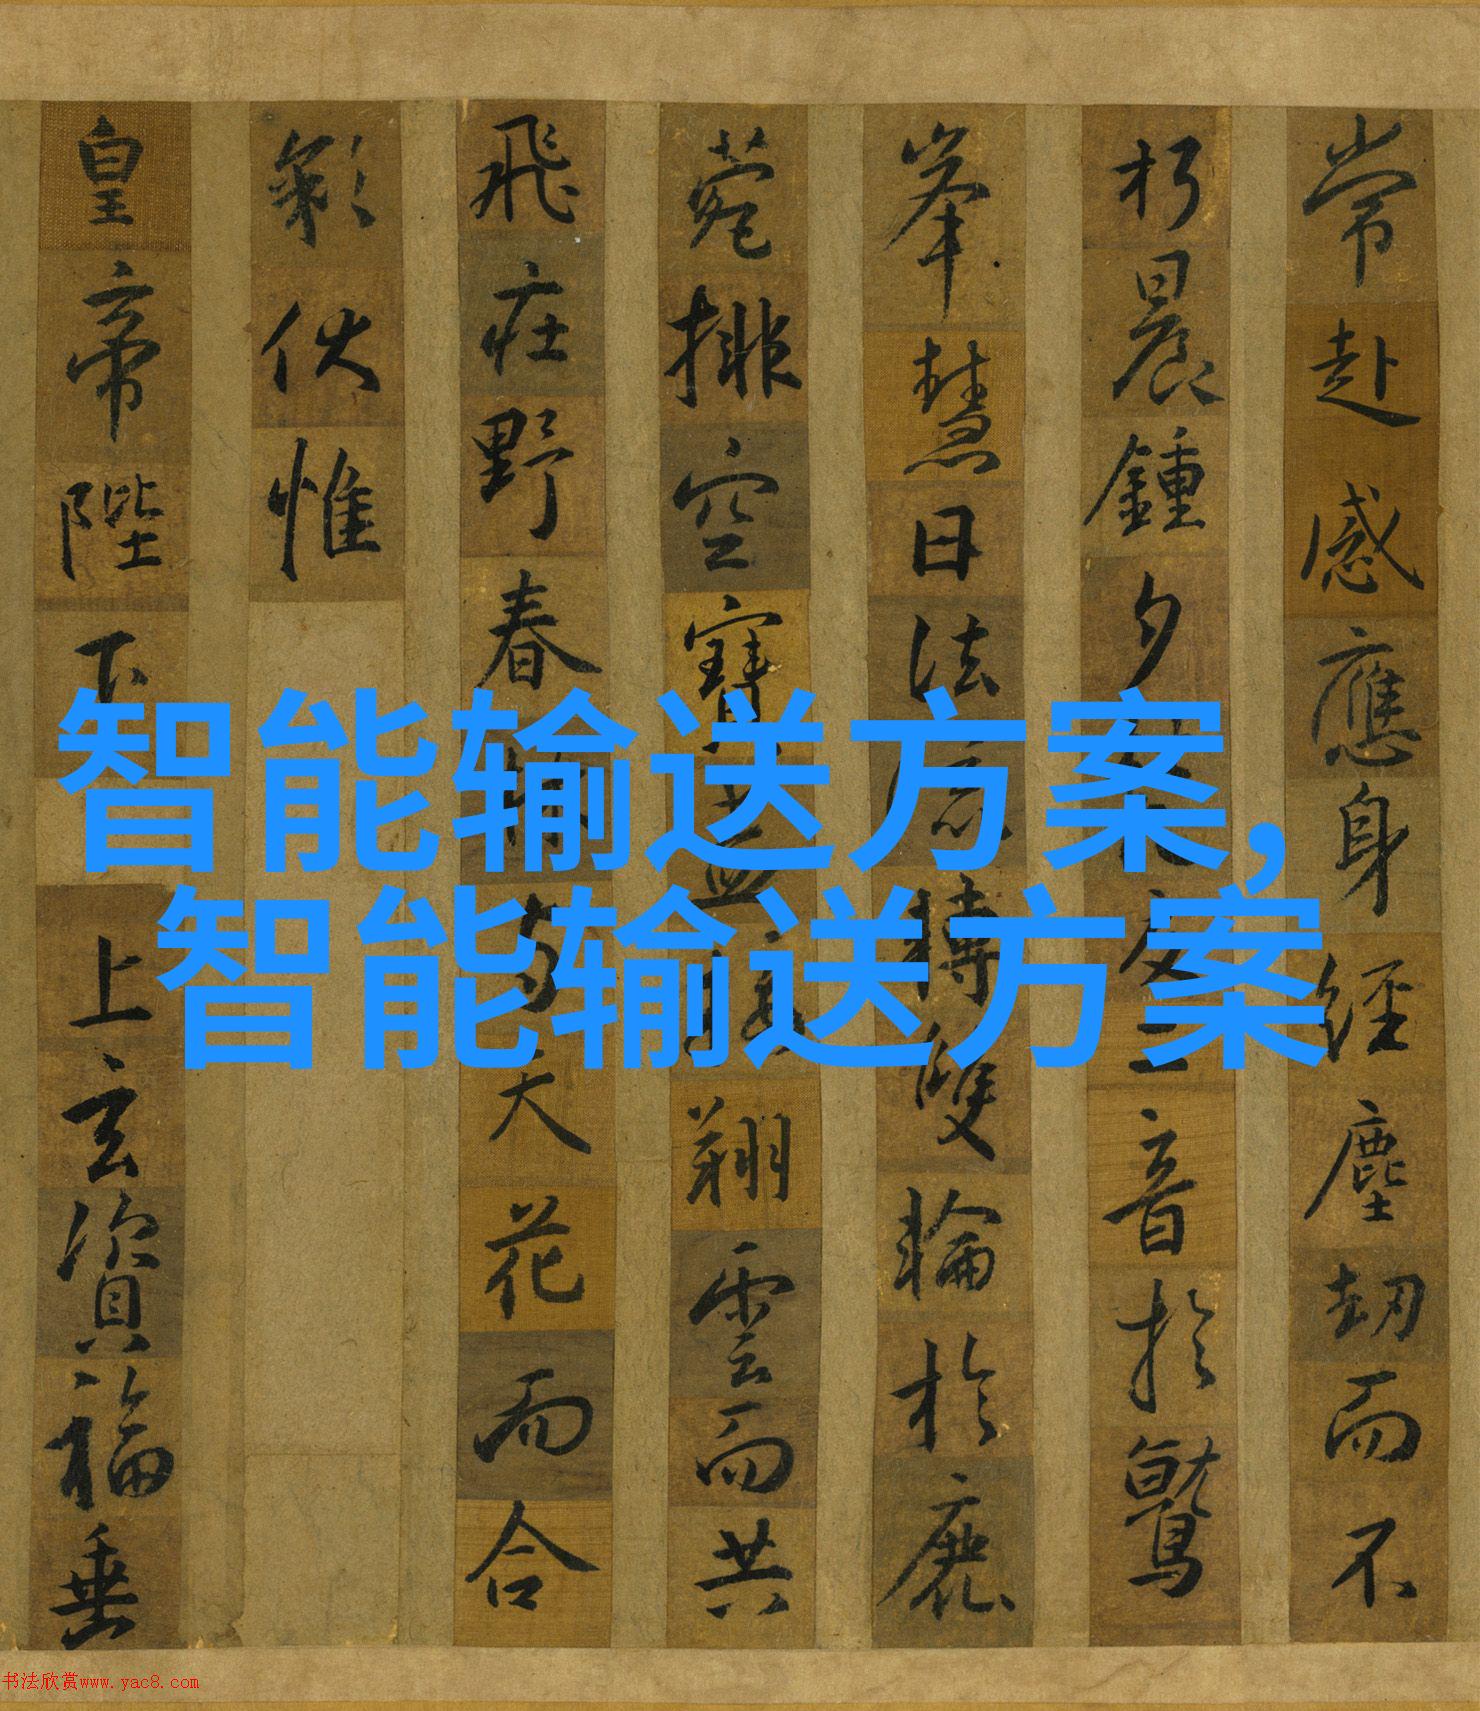 常赴感應身經塵劫而不
朽晨鍾夕交二音於鷲
峯慧日法流轉雙輪於鹿
菀排空寶蓋接翔雲而共
飛莊野春林与天花而合
彩伏惟
皇帝陛下上玄資福垂
智能输送方案,
智能输送方案
书法欣赏www.yac8.com